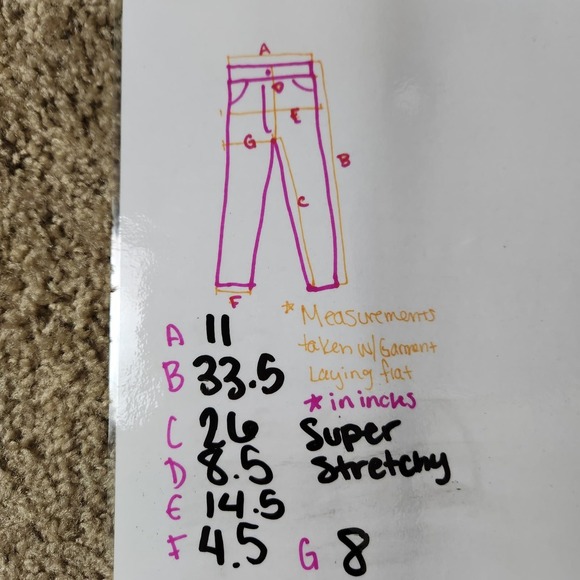 A
D
E
G
B
C
F
A 11
B 33.5
C 26
D 8.5
E 14.5
F 4.5
G 8
* Measurements
taken w/ Garment
Laying flat
* in inches
Super
Stretchy